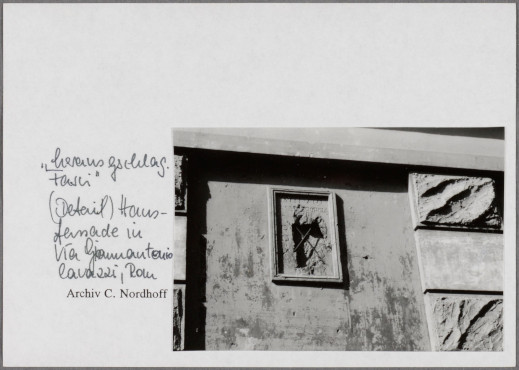 „herausgeschlag.
Fasci"
(Detail) Haus-
fassade in
Via Giannantonio
Cavazzi, Rom
Archiv C. Nordhoff